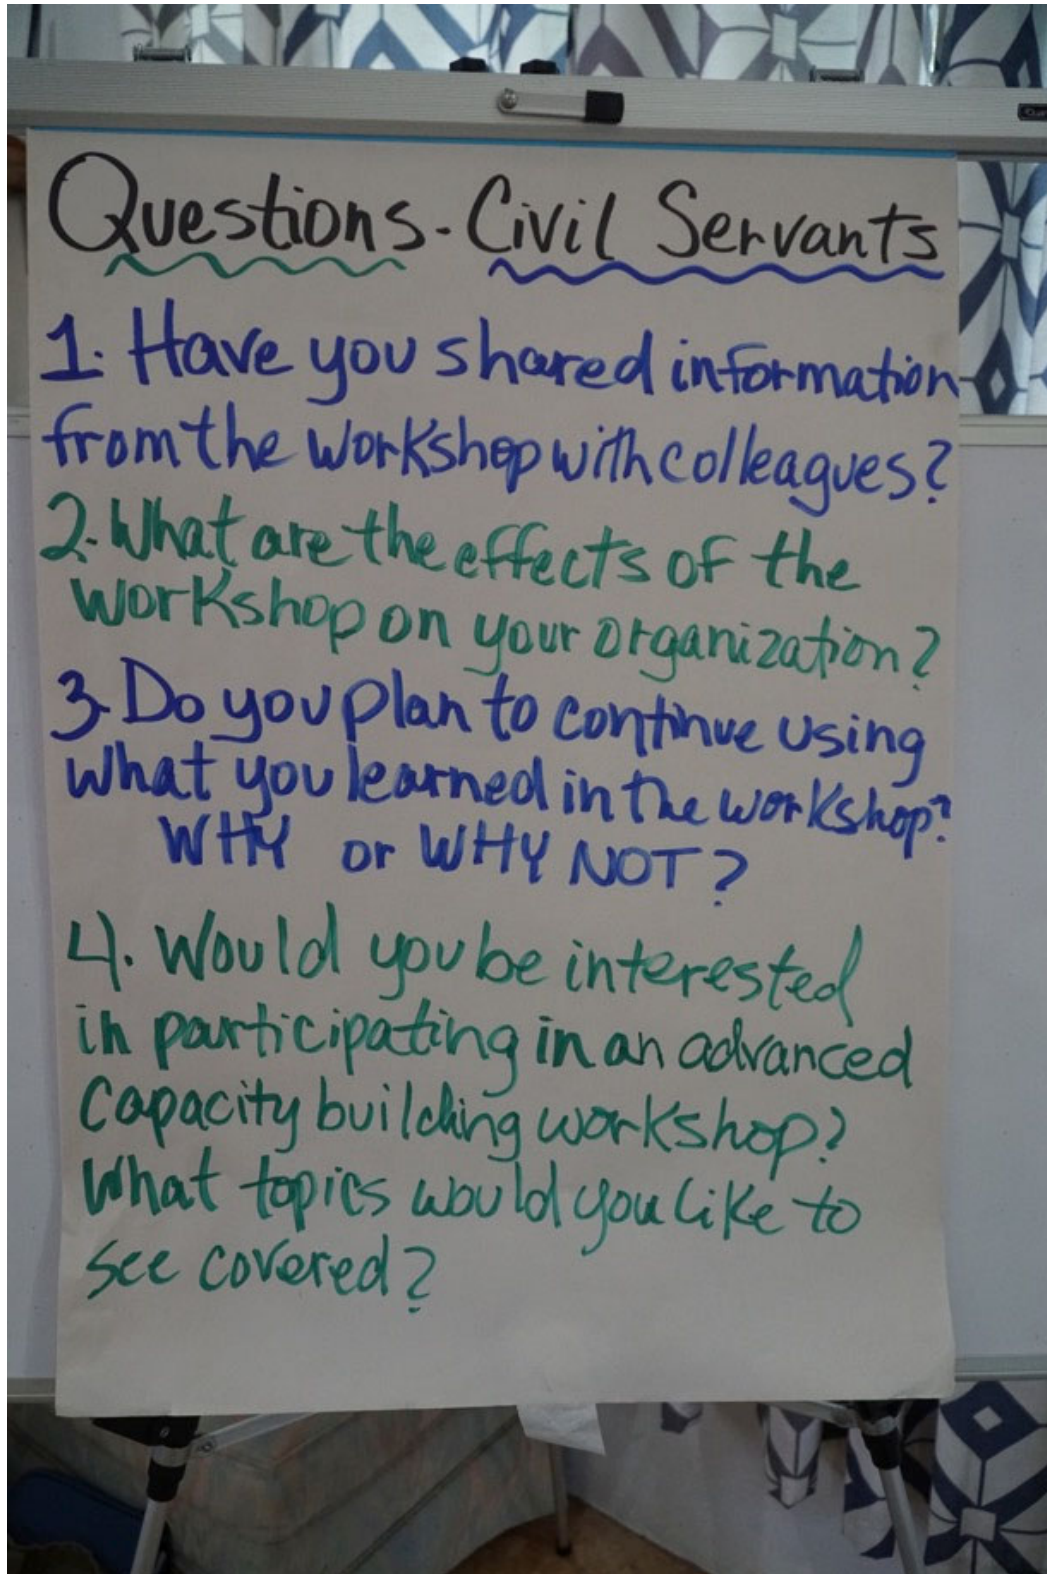 Questions - Civil Servants
1. Have you shared information
from the workshop with colleagues?
2. What are the effects of the
workshop on your organization?
3. Do you plan to continue using
what you learned in the workshop?
WHY or WHY NOT?
4. Would you be interested
in participating in an advanced
capacity building workshop?
What topics would you like to
see covered?